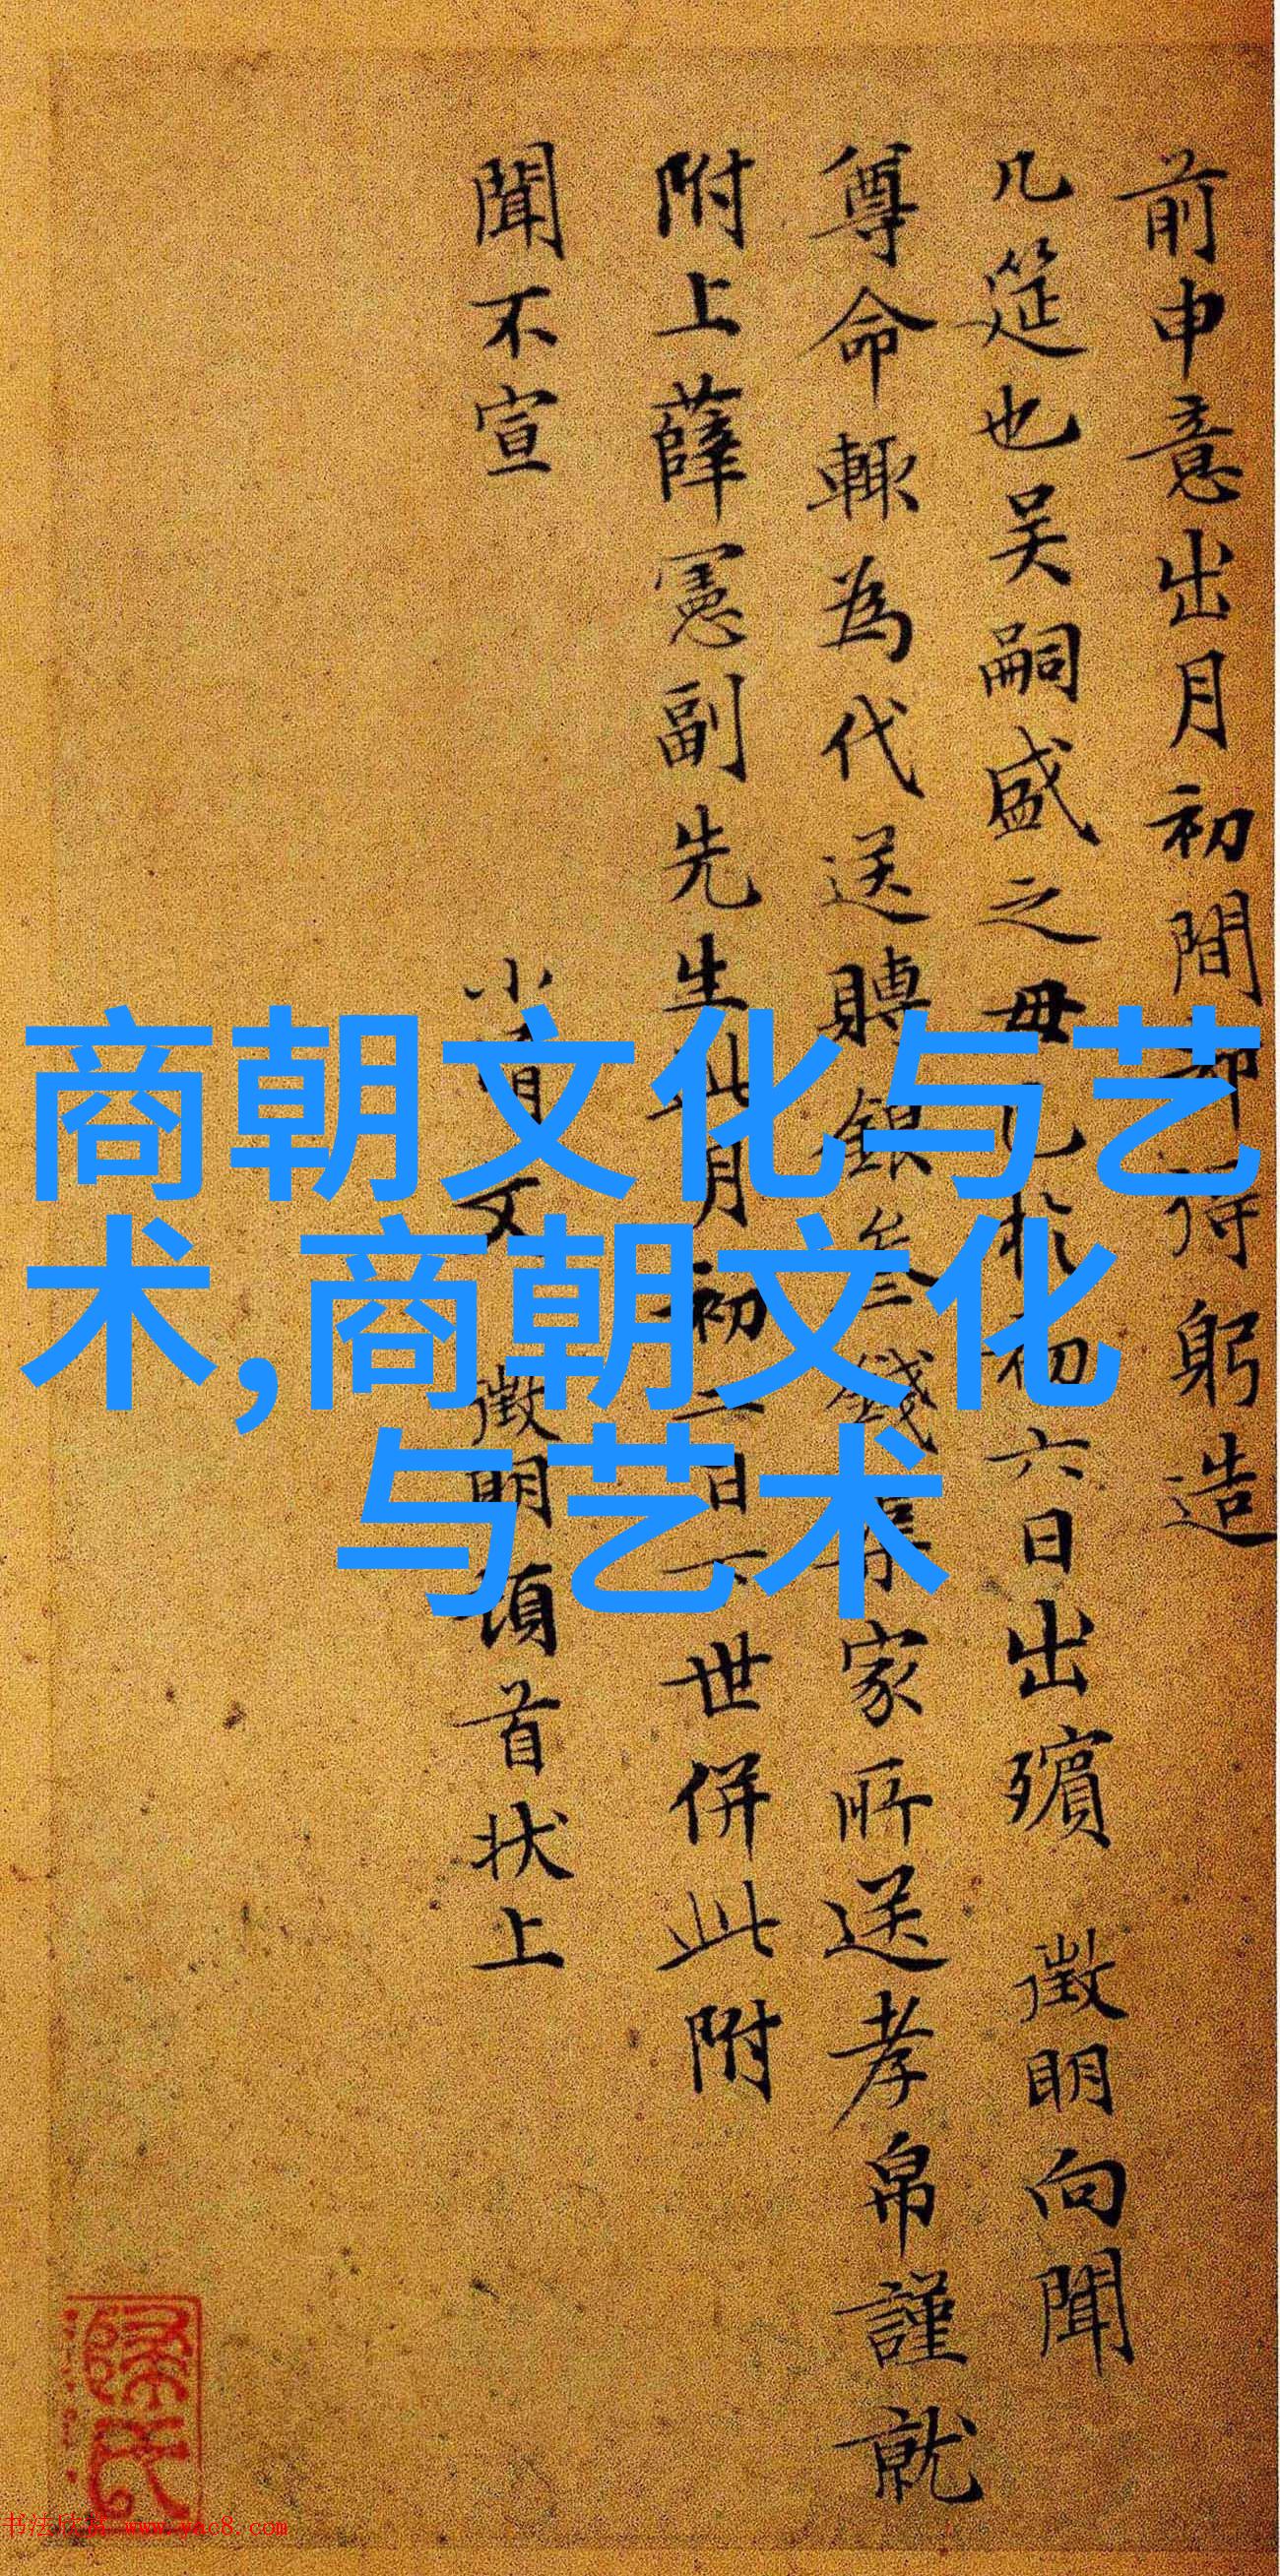 前申意出月初間
躬造
几筵也吴嗣盛之毋
初六日出殯 徵明向聞
尊命輒為代送賻銀
家所送孝帛謹就
附上薛憲副先生此月初二日
世併此附
聞不宣
徵明頓首狀上
商朝文化与艺
术,商朝文化
与艺术
书法欣赏 www.yac8.com